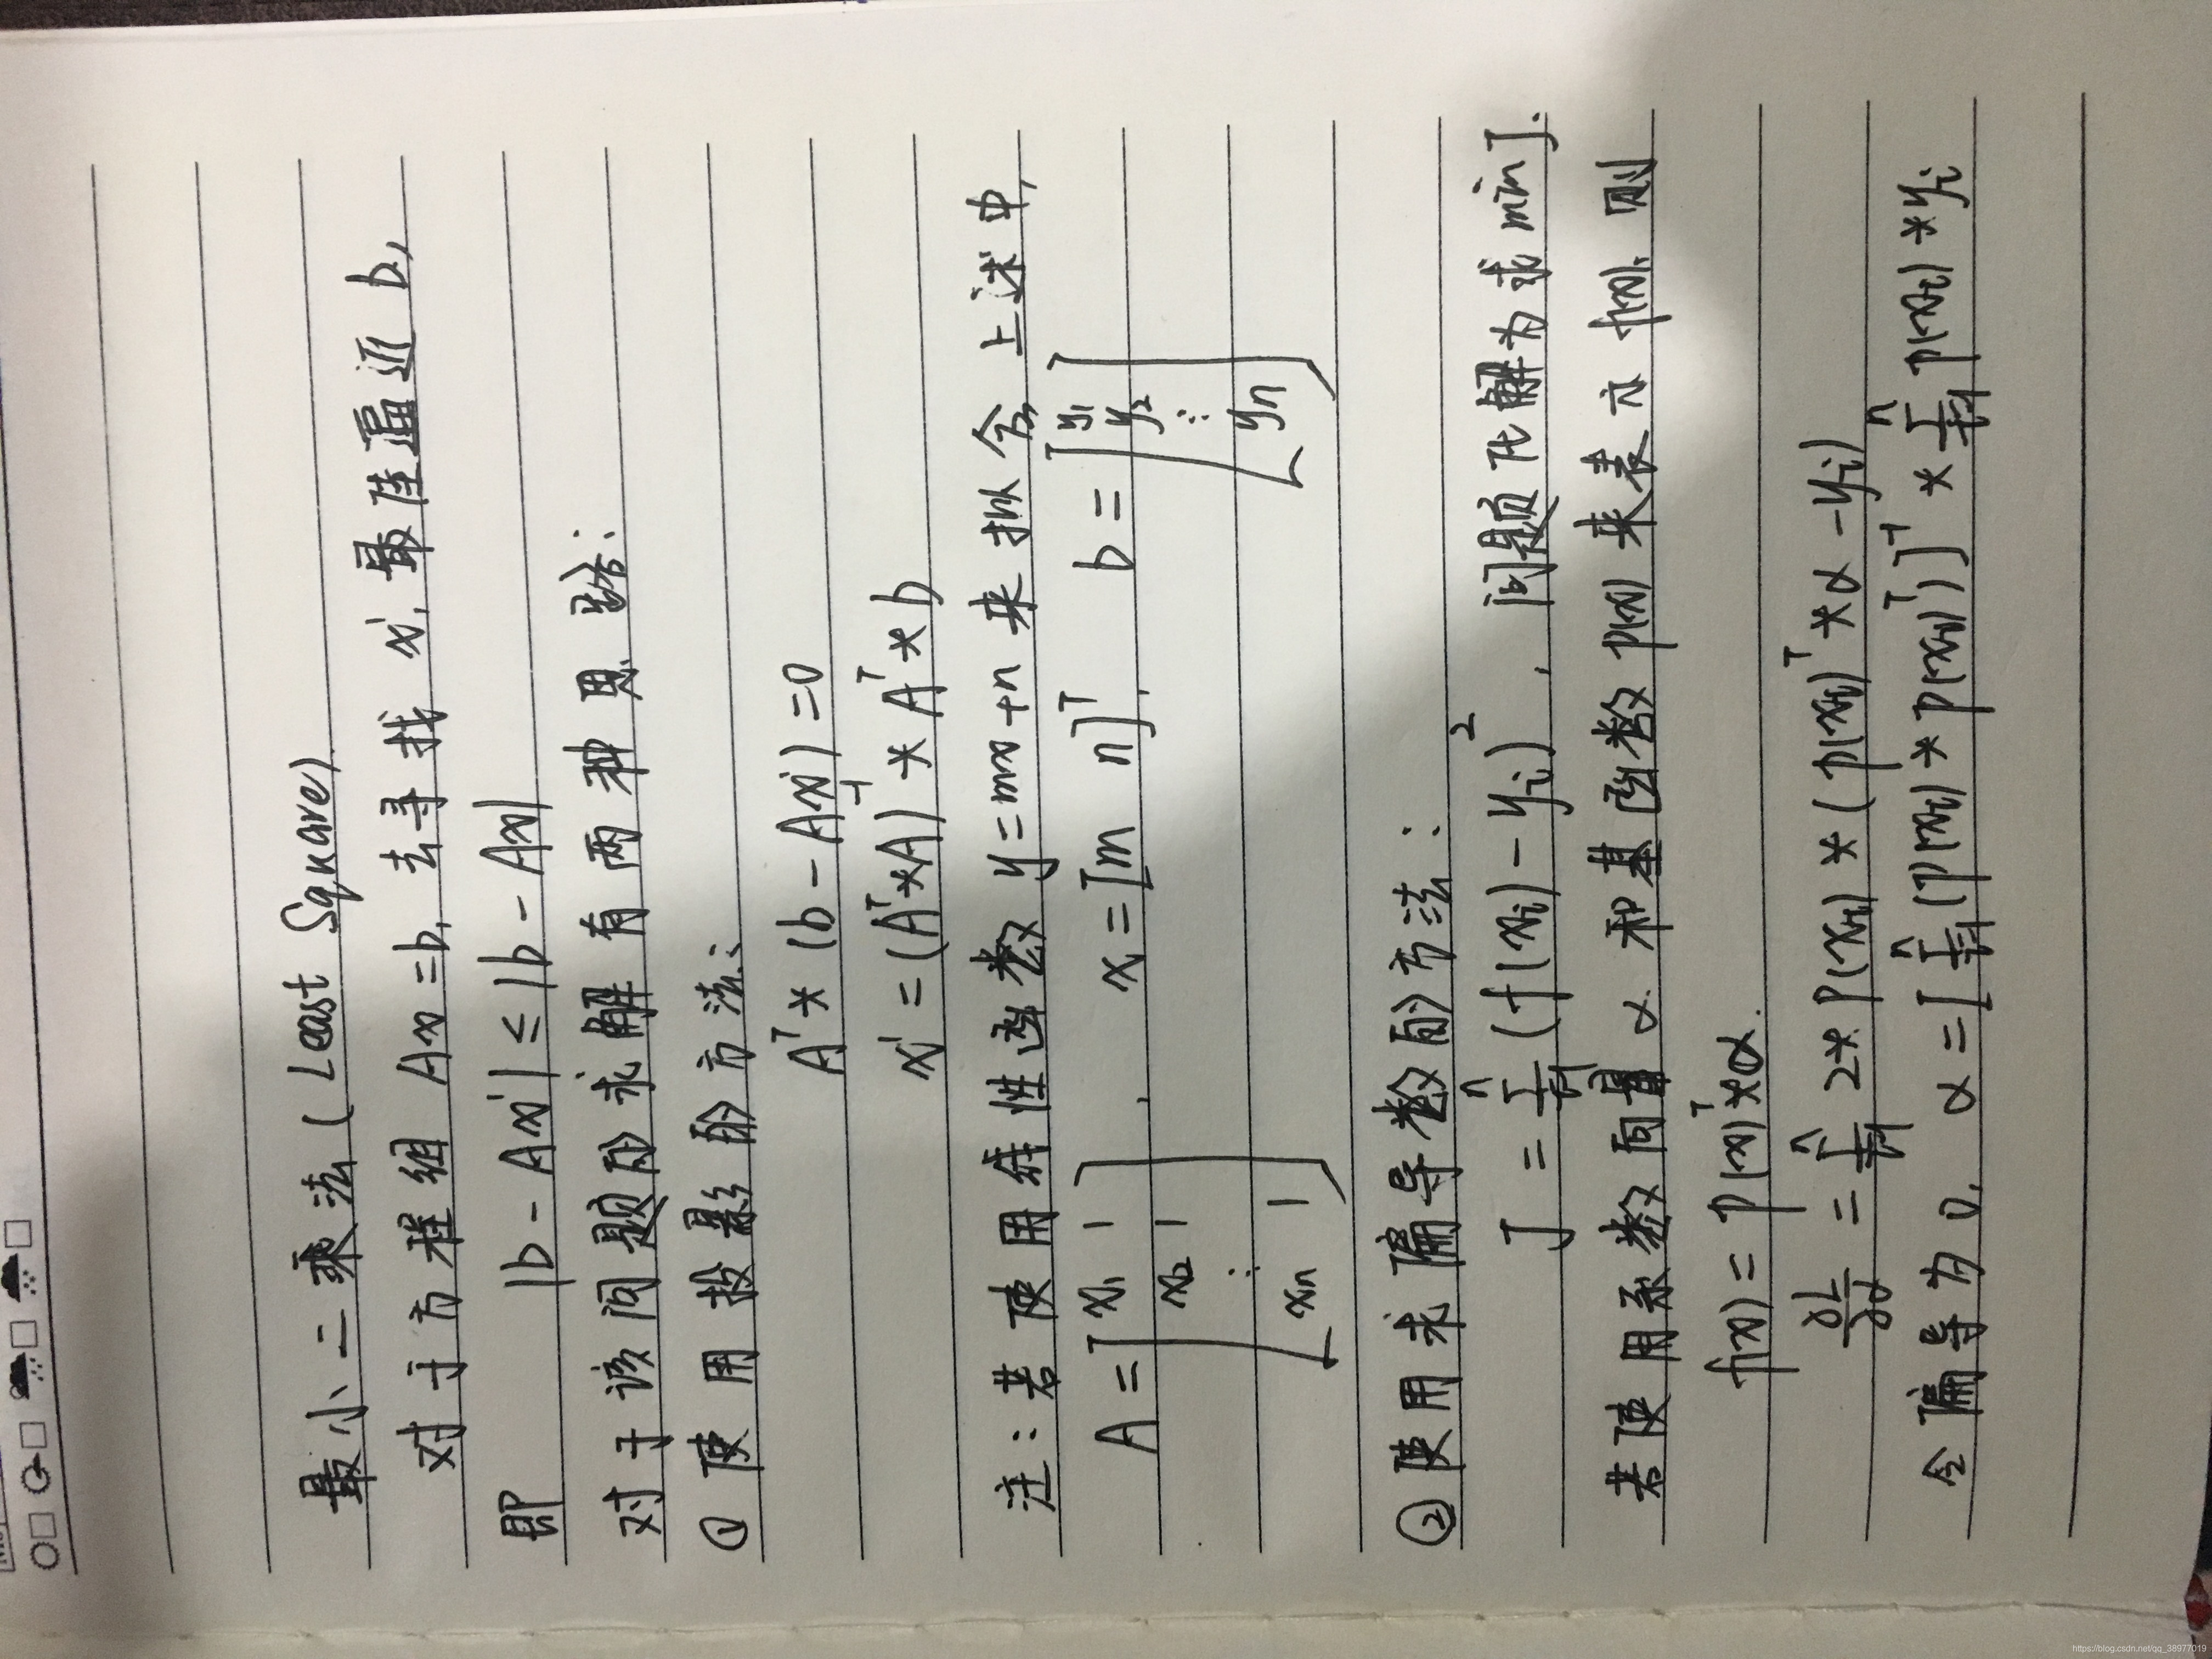 最小二乘法 (Least Square)
对于方程组 Ax=b, 去寻找 x', 最佳逼近 b,
即 |b - Ax'| ≤ |b - Ax|
对于该问题的求解有两种思路:
① 使用投影的方法:
Aᵀ * (b - Ax') = 0
x' = (Aᵀ*A)⁻¹ * Aᵀ * b
注: 若使用线性函数 y=mx+n 来拟合, 上述中,
A = [x₁ 1
x₂ 1
⋮
xn 1], x = [m n]ᵀ, b = [y₁
y₂
⋮
yn]
② 使用求偏导数的方法:
J = Σᵢ₌₁ⁿ (f(xᵢ) - yᵢ)², 问题化解为求 min J.
若使用系数向量 α 和基函数 p(x) 来表示 f(x), 则
f(x) = p(x)ᵀ*α.
∂J/∂α = Σᵢ₌₁ⁿ 2* p(xᵢ) * (p(xᵢ)ᵀ * α - yᵢ)
令偏导为 0, α = [Σᵢ₌₁ⁿ (p(xᵢ) * p(xᵢ)ᵀ)]⁻¹ * Σᵢ₌₁ⁿ p(xᵢ) * yᵢ
https://blog.csdn.net/qq_38977019